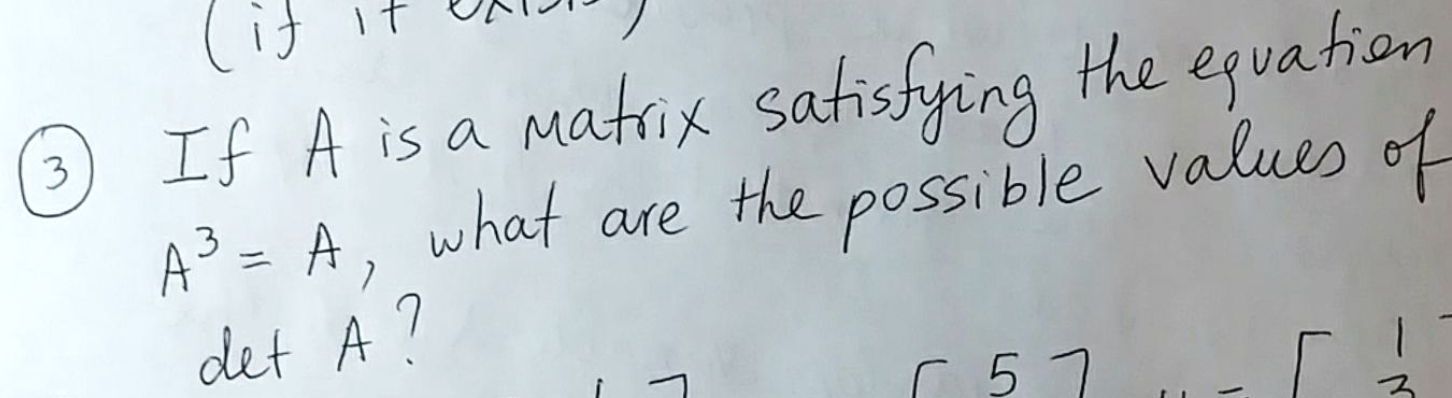 (if it
③ If A is a matrix satisfying the equation
A³ = A, what are the possible values of
det A?
[ 5 ] = [ 1
3